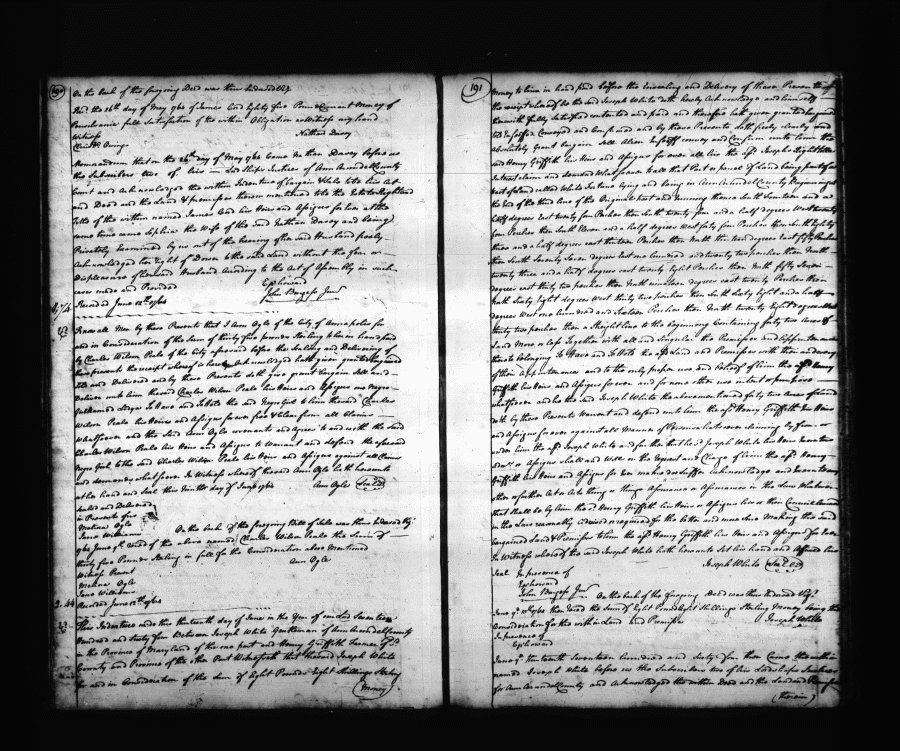 190
On the back of the foregoing Deed was thus Indorsed Viz.
Rec'd the 26th day of May 1764 of James Cord Eighty five Pounds Current Money of
Pensilvania full Satisfaction of the within Obligation as Witness my hand
Witness Nathan Davey
Memorandum that on the 26th day of May 1764 Came Nathan Davey before us
the Subscribers two of his Lordships Justices of Ann Arundel County
Court and Acknowledged the within Indenture of Bargain & Sale to be his Act
and Deed and the Land & premises therein mentioned to be the Estate Right and
Title of the within named James Cord his Heirs and Assigns for Ever at the
same time came Sophia the Wife of the said Nathan Davey and being
Privately Examined by us out of the hearing of her said Husband freely
Acknowledged her Right of Dower to the said Land without the fear or
displeasure of her said Husband According to the Act of Assembly in such
cases made and Provided
John Burgess Junr
Recorded June 12th 1764
Know all Men by these Presents that I Ann Ogle of the City of Annapolis for
and in Consideration of the Sum of thirty five pounds Sterling to her in hand paid
by Charles Wilson Peale of the City aforesaid before the Sealing and Delivering of
these presents the receipt whereof is hereby Acknowledged hath given granted Bargained
Sold and Delivered and by these Presents doth give grant Bargain Sell and
Deliver unto him the said Charles Wilson Peale his Heirs and Assigns one Negro
To Have and To Hold the said Negro Girl to him the said Charles
Wilson Peale his Heirs and Assigns for ever free & Clear from all Claims
Whatsoever and the said Ann Ogle covenants and Agrees to and with the said
Charles Wilson Peale his Heirs and Assigns to Warrant and defend the aforesaid
Negro Girl to the said Charles Wilson Peale his Heirs and Assigns against all Claims
and demands whatsoever In Witness whereof the said Ann Ogle hath hereunto
set her hand and Seal this Ninth day of June 1764
Ann Ogle Seal
Sealed and Delivered
in Presence of us
Ogle
Jane Williams
On the back of the foregoing Bill of Sale was thus Indorsed Viz.
1764 June 9th Rec'd of the above named Charles Wilson Peale the Sum of
thirty five Pounds Sterling in full for the Consideration above Mentioned
Witness Present Ann Ogle
Ogle
Jane Williams
Recorded June 12th 1764
This Indenture made this thirteenth day of June in the Year of our Lord Seventeen
Hundred and Sixty four Between Joseph White Gentleman of Ann Arundel County
in the Province of Maryland of the one part and Henry Griffith Farmer of sd
County and Province of the other Part Witnesseth that the said Joseph White
for and in Consideration of the Sum of Eight Pounds Eight Shillings Sterling
(money)
191
Money to him in hand paid before the Ensealing and Delivery of these Presents
the receipt whereof he the said Joseph White doth hereby Acknowledge and himself
therewith fully Satisfied contented and paid and therefore hath given granted Bargained
Sold Enfeoffed Conveyed and Confirmed and by these Presents doth freely clearly and
absolutely Grant Bargain Sell Alien Enfeoff convey and Confirm unto him the
said Henry Griffith his Heirs and Assigns for ever all his the afsd Joseph Right Title
Interest claim and demand Whatsoever to all that Part or parcel of Land being part of a
tract of Land called Whites Fortune lying and being in Ann Arundel County Beginning at
the End of the third line of the Original tract and running thence South Seventeen and a
half degrees East twenty four Perches then South twenty four and a half degrees West twenty
four Perches then South Eleven and a half degrees West forty four Perches then South Eighty
three and a half degrees East thirteen Perches then North thirty two degrees East fifty Perches
then South Seventy Seven degrees East one hundred and twenty two perches then North
twenty three and a half degrees East twenty Eight Perches then North fifty Seven
degrees East thirty two Perches then North nineteen degrees East twenty Perches then
North Sixty Eight degrees West thirty two perches then South Sixty Eight and a half
degrees West one hundred and Sixteen Perches then North twenty Eight degrees West
thirty two perches then a Straight line to the beginning Containing forty two Acres of
Land More or Less Together with all and Singular the Premises and Appurtenances
thereto belonging To Have and To Hold the afsd Land and Premises with their and every
of their Appurtenances and to the only proper use and Behoof of him the afsd Henry
Griffith his Heirs and Assigns for ever and for none other use intent or purpose
whatsoever and he the said Joseph White the above mentioned forty two Acres of Land
doth by these Presents Warrant and defend unto him the afsd Henry Griffith his Heirs
and Assigns for ever against all Manner of Persons whatsoever claiming by from or
under him the afsd Joseph White and further that he sd Joseph White his Heirs Executors
Admrs or Assigns shall and Will on the request and Charge of him the afsd Henry
Griffith his Heirs and Assigns for Ever make do Suffer Acknowledge and Execute any
other or further Act or Acts thing or things Assurance or Assurances in the Law Whatsoever
that shall be by him the sd Henry Griffith his Heirs or Assigns his or their Council learned
in the Law reasonably advised or required for the better and more sure Making this said
bargained Land & Premises to him the afsd Henry Griffith his Heirs and Assigns for ever
In Witness whereof the said Joseph White hath hereunto set his hand and Affixed his
Seal In presence of Joseph White Seal
John Burgess Junr
On the back of the foregoing Deed was thus Indorsed Viz.
June 13th 1764 then Rec'd the Sum of Eight Pounds Eight Shillings Sterling Money being the
Consideration for the within Land and Premises
In presence of Joseph White
June ye thirteenth Seventeen hundred and Sixty four then Came the within
named Joseph White before us the Subscribers two of his Lordships Justices
for Ann Arundel County and Acknowledged the within Deed and the Land and Premises
(therein)